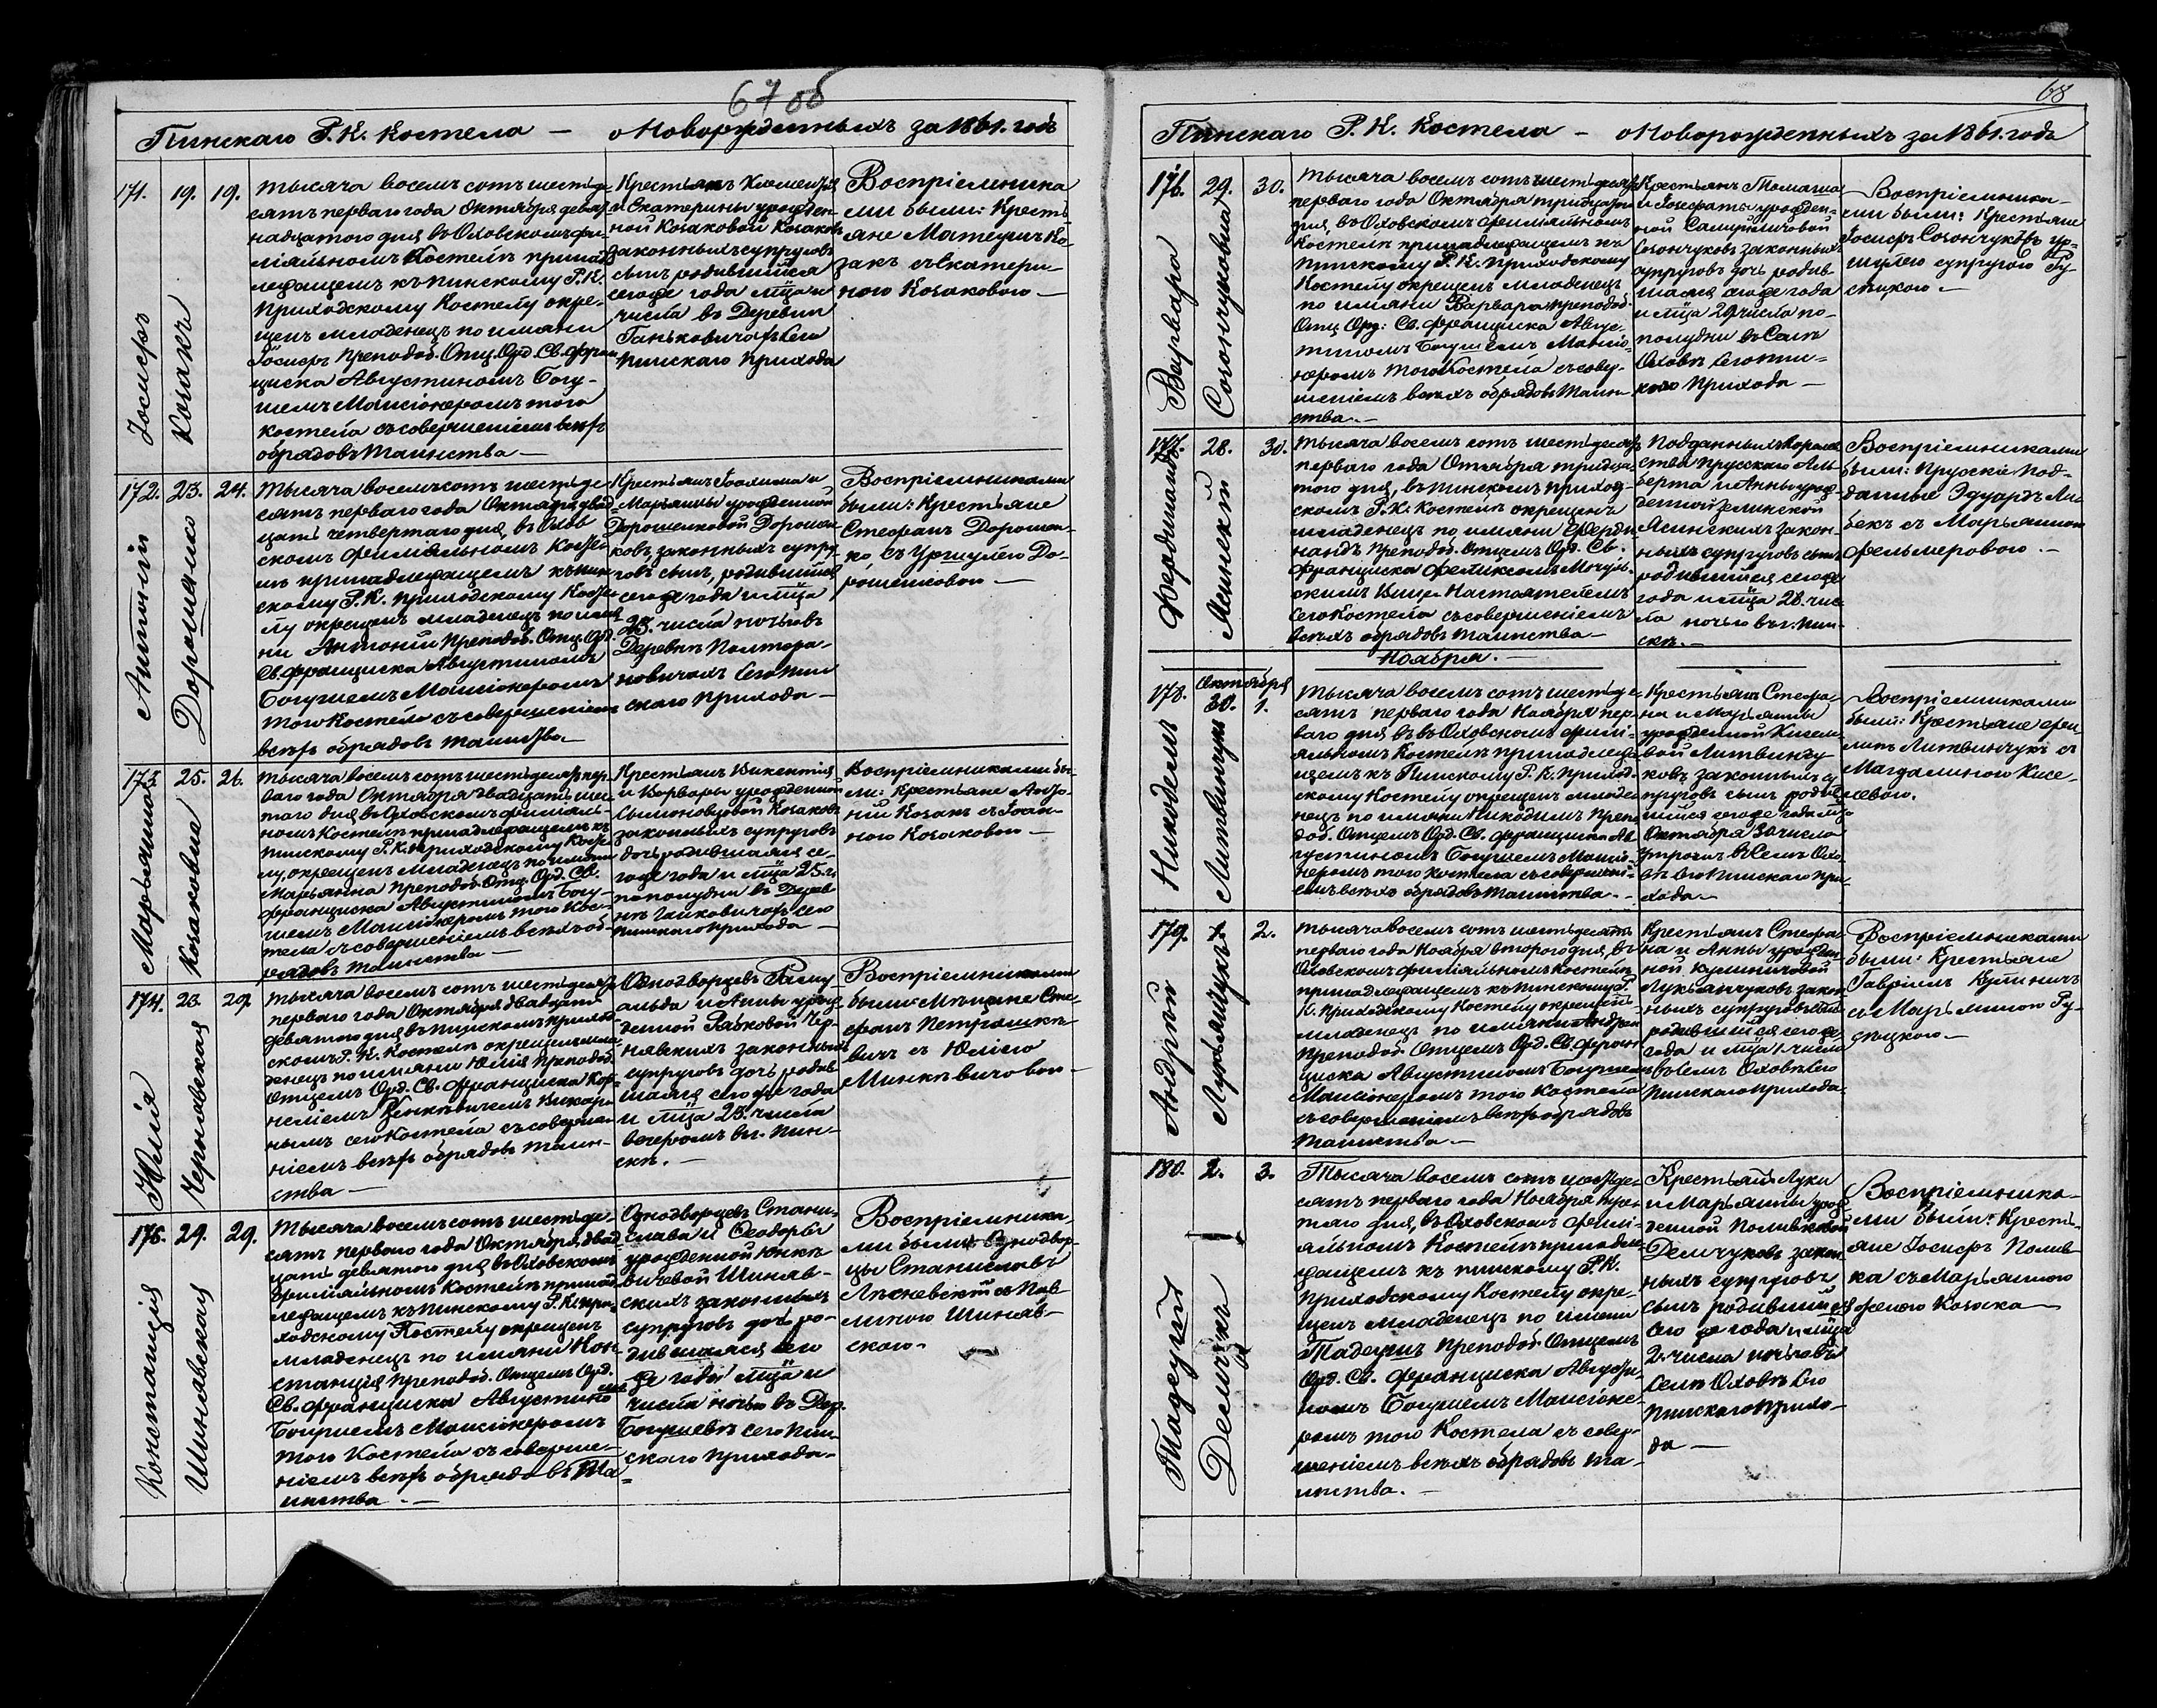 67 об
Пинскаго Р. К. Костела — о Новорожденныхъ за 1861. годъ
171. 19. 19.
Іосифъ
Козакъ
тысяча восемь сотъ шестьде-
сятъ перваго года Октября девят
надцатого дня въ Оховскомъ фи-
ліяльномъ Костелѣ принад
лежащемъ къ Пинскому Р. К.
Приходскому Костелу окре-
щенъ младенецъ по имяни
Іосифъ Преподоб. Отц. Орд. Св. Фран
циска Августиномъ Богу-
шемъ Мансіонеромъ того
Костела съ совершеніемъ всѣхъ
обрядовъ Таинства —
Крестьянъ Климентія
и Екатерины урожден-
ной Козаковой Козаковъ
законныхъ супруговъ
сынъ родившійся
сего же года мца и
числа въ Деревни
Ганьковичахъ Сего
Пинскаго Прихода
Воспріемника
ми были: Кресть
яне Матеушъ Ко-
закъ съ Екатери-
ною Козаковою —
172. 23. 24.
Антоній
Дорошенко
Тысяча восемь сотъ шестьде-
сятъ перваго года Октября двад
цать четвертаго дня въ Охов
скомъ филіяльномъ Косте-
лѣ принадлежащемъ къ Пин
скому Р. К. Приходскому Косте
лу окрещенъ младенецъ по имя
ни Антоній Преподоб. Отц. Орд.
Св. Франциска Августиномъ
Богушемъ Мансіонеромъ
того Костела съ совершеніемъ
всѣхъ обрядовъ Таинства
Крестьянъ Іоахима и
Марьянны урожденной
Дорошенковой Дорошен
ковъ законныхъ супру-
говъ сынъ, родившійся
сего же года и мца
23. числа ночью въ
Деревнѣ Полтора-
новичахъ Сего Пин
скаго Прихода —
Воспріемниками
были: Крестьяне
Стефанъ Дорошен-
ко съ Уршулею До-
рошенковою —
173. 25. 26.
Марьянна
Козаковна
тысяча восемь сотъ шестьдесятъ пер-
ваго года Октября двадцать шес
того дня въ Оховскомъ филіаль
номъ Костелѣ принадлежащемъ къ
Пинскому Р. К. Приходскому Косте
лу, окрещенъ младенецъ по имяни
Марьянна Преподоб. Отц. Орд. Св.
Франциска Августиномъ Богу-
шемъ Мансіонеромъ того Кос-
тела съ совершеніемъ всѣхъ об-
рядовъ Таинства —
Крестьянъ Викентія
и Варвары урожденной
Козаковъ
законныхъ супруговъ
дочь родившаяся се-
го же года и мца 25. ч.
пополудни въ Дерев
нѣ Ганковичахъ сего
Пинскаго Прихода —
Воспріемниками бы-
ли: Крестьяне Анто-
ній Козакъ съ Іоан-
ною Козаковою —
174. 23. 29.
Юлія
Чернявская
тысяча восемь сотъ шестьдесятъ
перваго года Октября двадцать
девятого дня въ Пинскомъ приход
скомъ Р. К. Костелѣ окрещенъ мла
денецъ по имяни Юлія Преподоб.
Отцемъ Орд. Св. Франциска Кор-
неліемъ Викар
нымъ сего Костела съ соверше
ніемъ всѣхъ обрядовъ Таин-
ства —
Однодворцевъ Рому
альда и Анны урож
денной Рябковой Чер-
нявскихъ законныхъ
супруговъ дочь родив
шаяся сего же года
и мца 23. числа
вечеромъ въ г. Пин-
скѣ. —
Воспріемниками
были: Мѣщане Сте-
фанъ Петрашке-
вичъ съ Юліею
Минкѣвичовою —
175. 29. 29.
Констанція
Шинявская
Тысяча восемь сотъ шестьде-
сятъ перваго года Октября двад
цать девятого дня въ Оховскомъ
филіяльномъ Костелѣ принад
лежащемъ къ Пинскому Р. К. при-
ходскому Костелу окрещенъ
младенецъ по имяни Кон-
станція Преподоб. Отцемъ Орд.
Св. Франциска Августиномъ
Богушемъ Мансіонеромъ
того Костела съ соверше-
ніемъ всѣхъ обрядовъ Та-
инства. —
Однодворцевъ Стани-
слава и Теодоры
урожденной Юнкѣ
вичевой Шиняв-
скихъ законныхъ
супруговъ дочь ро-
дившаяся сего
же года мца и
числа ночью въ Дер.
Богушевѣ сего Пин-
скаго прихода —
Воспріемника-
ми были: Однодвор-
цы Станиславъ
съ Пав
линою Шиняв-
скою —
68
Пинскаго Р. К. Костела — о Новорожденныхъ за 1861. года
176. 29. 30.
Варвара
Согончуковна
тысяча восемь сотъ шестьдесятъ
перваго года Октября тридцатого
дня, въ Оховскомъ филіяльномъ
Костелѣ принадлежащемъ къ
Пинскому Р. К. приходскому
Костелу окрещенъ младенецъ
по имяни Варвара Преподоб.
Отц. Орд: Св. Франциска Авгус-
тиномъ Богушемъ Мансіо-
неромъ того Костела съ совер-
шеніемъ всѣхъ обрядовъ Таин-
ства. —
Крестьянъ Томаша
и Іозефаты урожден-
ной
Согончуковъ законныхъ
супруговъ дочь родив-
шаяся сего же года
и мца 29 числа по-
полудни въ Селѣ
Оховѣ Сего Пин-
ского Прихода —
Воспріемника-
ми были: Крестьяне
Іосифъ Согончукъ съ Ур-
шулею супругою Ру-
децкого. —
177. 28. 30.
Фердинандъ
Ясинскій
Тысяча восемь сотъ шестьдесятъ
перваго года Октября тридца-
того дня, въ Пинскомъ приход-
скомъ Р. К. Костелѣ окрещенъ
младенецъ по имяни Ферди-
нандъ Преподоб. Отцемъ Орд. Св.
Франциска Феликсомъ Мочуль
скимъ Вице-Настоятелемъ
сего Костела съ совершеніемъ
всѣхъ обрядовъ таинства —
Подданныхъ Королев
ства Прусскаго Аль
берта и Анны урож-
денной Зелинской
Ясинскихъ закон-
ныхъ супруговъ сынъ
родившійся сего же
года и мца 28. чис
ла ночью въ г. Пин-
скѣ. —
Воспріемниками
были: Прускіе под-
данные Эдуардъ Ли
бекъ съ Марьянною
Фельмеровою. —
Ноября. —
178. Октября 30. 1.
Никодемъ
Литвинчукъ
тысяча восемь сотъ шестьде-
сятъ перваго года Ноября пер-
ваго дня въ Оховскомъ фили-
яльномъ Костелѣ принадлежа
щемъ къ Пинскому Р. К. приход-
скому Костелу окрещенъ младе
нецъ по имяни Никодимъ Препо
доб. Отцемъ Орд. Св. Франциска Ав
густиномъ Богушемъ Мансіо-
неромъ того Костела съ совершені-
емъ всѣхъ обрядовъ Таинства. —
Крестьянъ Стефа-
на и Марьянны
урожденной Кисел
вой Литвинчу
ковъ законныхъ су
пруговъ сынъ родив
шійся сего же года мца
Октября 30 числа
утромъ въ Селѣ Охо-
вѣ сего Пинскаго При-
хода —
Воспріемниками
были: Крестьяне
Литвинчукъ съ
Магдаленою Кисе-
левою.
179. 1. 2.
Андрей
Лукьянчукъ
тысяча восемь сотъ шестьдесятъ
перваго года Ноября второго дня, въ
Оховскомъ филіяльномъ Костелѣ
принадлежащемъ къ Пинскому Р.
К. приходскому Костелу окрещенъ
младенецъ по имяни Андрей
Преподоб. Отцемъ Орд. Св. Фран-
циска Августиномъ Богушемъ
Мансіонеромъ того Костела
съ совершеніемъ всѣхъ обрядовъ
Таинства —
Крестьянъ Стефа-
на и Анны урожден
ной Кулиничовой
Лукьянчуковъ закон
ныхъ супруговъ сынъ
родившійся сего же
года и мца 1. числа
въ Селѣ Оховѣ Сего
Пинскаго Прихода
Воспріемниками
были: Крестьяне
Гавріилъ Кулиничъ
съ Марьянною Ру-
децкою —
180. 2. 3.
Тадеушъ
Демчукъ
Тысяча восемь сотъ шестьде-
сятъ перваго года Ноября тре-
тяго дня, въ Оховскомъ фили-
яльномъ Костелѣ принадле-
жащемъ къ Пинскому Р. К.
Приходскому Костелу окре-
щенъ младенецъ по имяни
Тадеушъ Преподоб. Отцемъ
Орд. Св. Франциска Августи-
номъ Богушемъ Мансіоне-
ромъ того Костела съ совер-
шеніемъ всѣхъ обрядовъ Та-
инства. —
Крестьянъ Луки
и Марьянны урож
денной Поливковой
Демчуковъ закон
ныхъ супруговъ
сынъ родившійся
сего же года и мца
2. числа ночью въ
Селѣ Оховѣ Сего
Пинскаго Прихо-
да —
Воспріемника-
ми были: Кресть-
яне Іосифъ Полив
ка съ Марьянною
женою Козака —